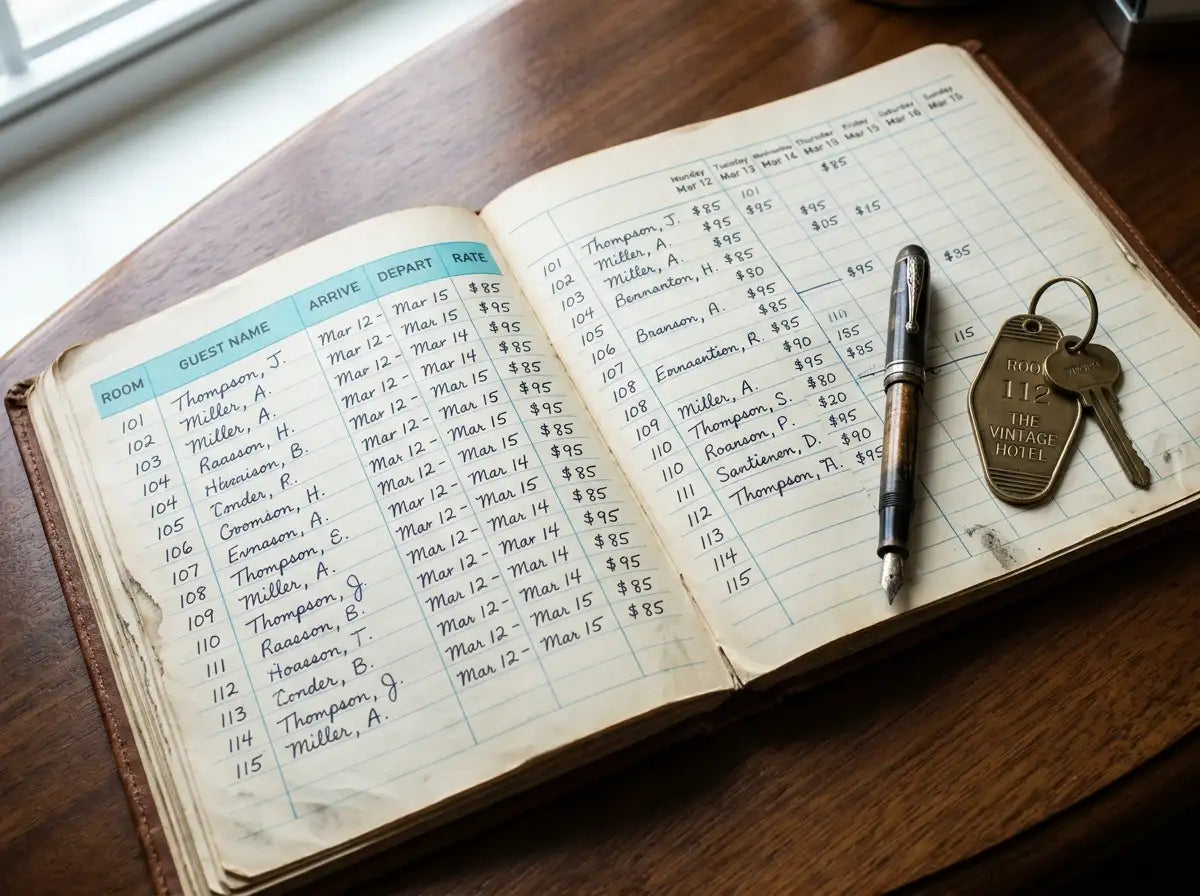 ROOM GUEST NAME ARRIVE DEPART RATE
101 Thompson, J. Mar 12 - Mar 15 $85
102 Miller, A. Mar 12 - Mar 15 $95
103 Miller, A. Mar 12 - Mar 14 $95
104 Raasson, H. Mar 12 - Mar 14 $85
104 B. Mar 12 - Mar 15 $85
105 Conder, R. Mar 12 - Mar 15 $95
106 Goomson, H. Mar 12 - Mar 15 $95
107 Ermason, A. Mar 12 - Mar 14 $85
108 Thompson, E. Mar 12 - Mar 15 $95
109 Miller, A. Mar 12 - Mar 14 $85
110 Thompson, J. Mar 12 - Mar 14 $85
111 Raasson, B. Mar 12 - Mar 14 $95
112 Hoasson, T. Mar 12 - Mar 14 $85
113 Conder, B. Mar 12 - Mar 15 $95
114 Thompson, J. Mar 12 - Mar 15 $85
115 Miller, A. $85
Monday Tuesday Wednesday Thursday Friday Saturday Sunday
Mar 12 Mar 13 Mar 14 Mar 15 Mar 16 Mar 15
101 Thompson, J. $85 101 $85
102 Miller, A. $95 $95 $95 $15
103 Miller, A. $95 $05
104 Bernanton, H. $85
105 $80 $95 $35
106 Branson, A. $95
107 $85 111
108 Ernaantien, R. $90 185 115
108 $95 $85
109 Miller, A. $80
110 Thompson, S. $20
110 Roanson, P. $95
111 Santienen, D. $90
112 Thompson, A. $95
113
114
115
ROOM
112
THE
VINTAGE
HOTEL